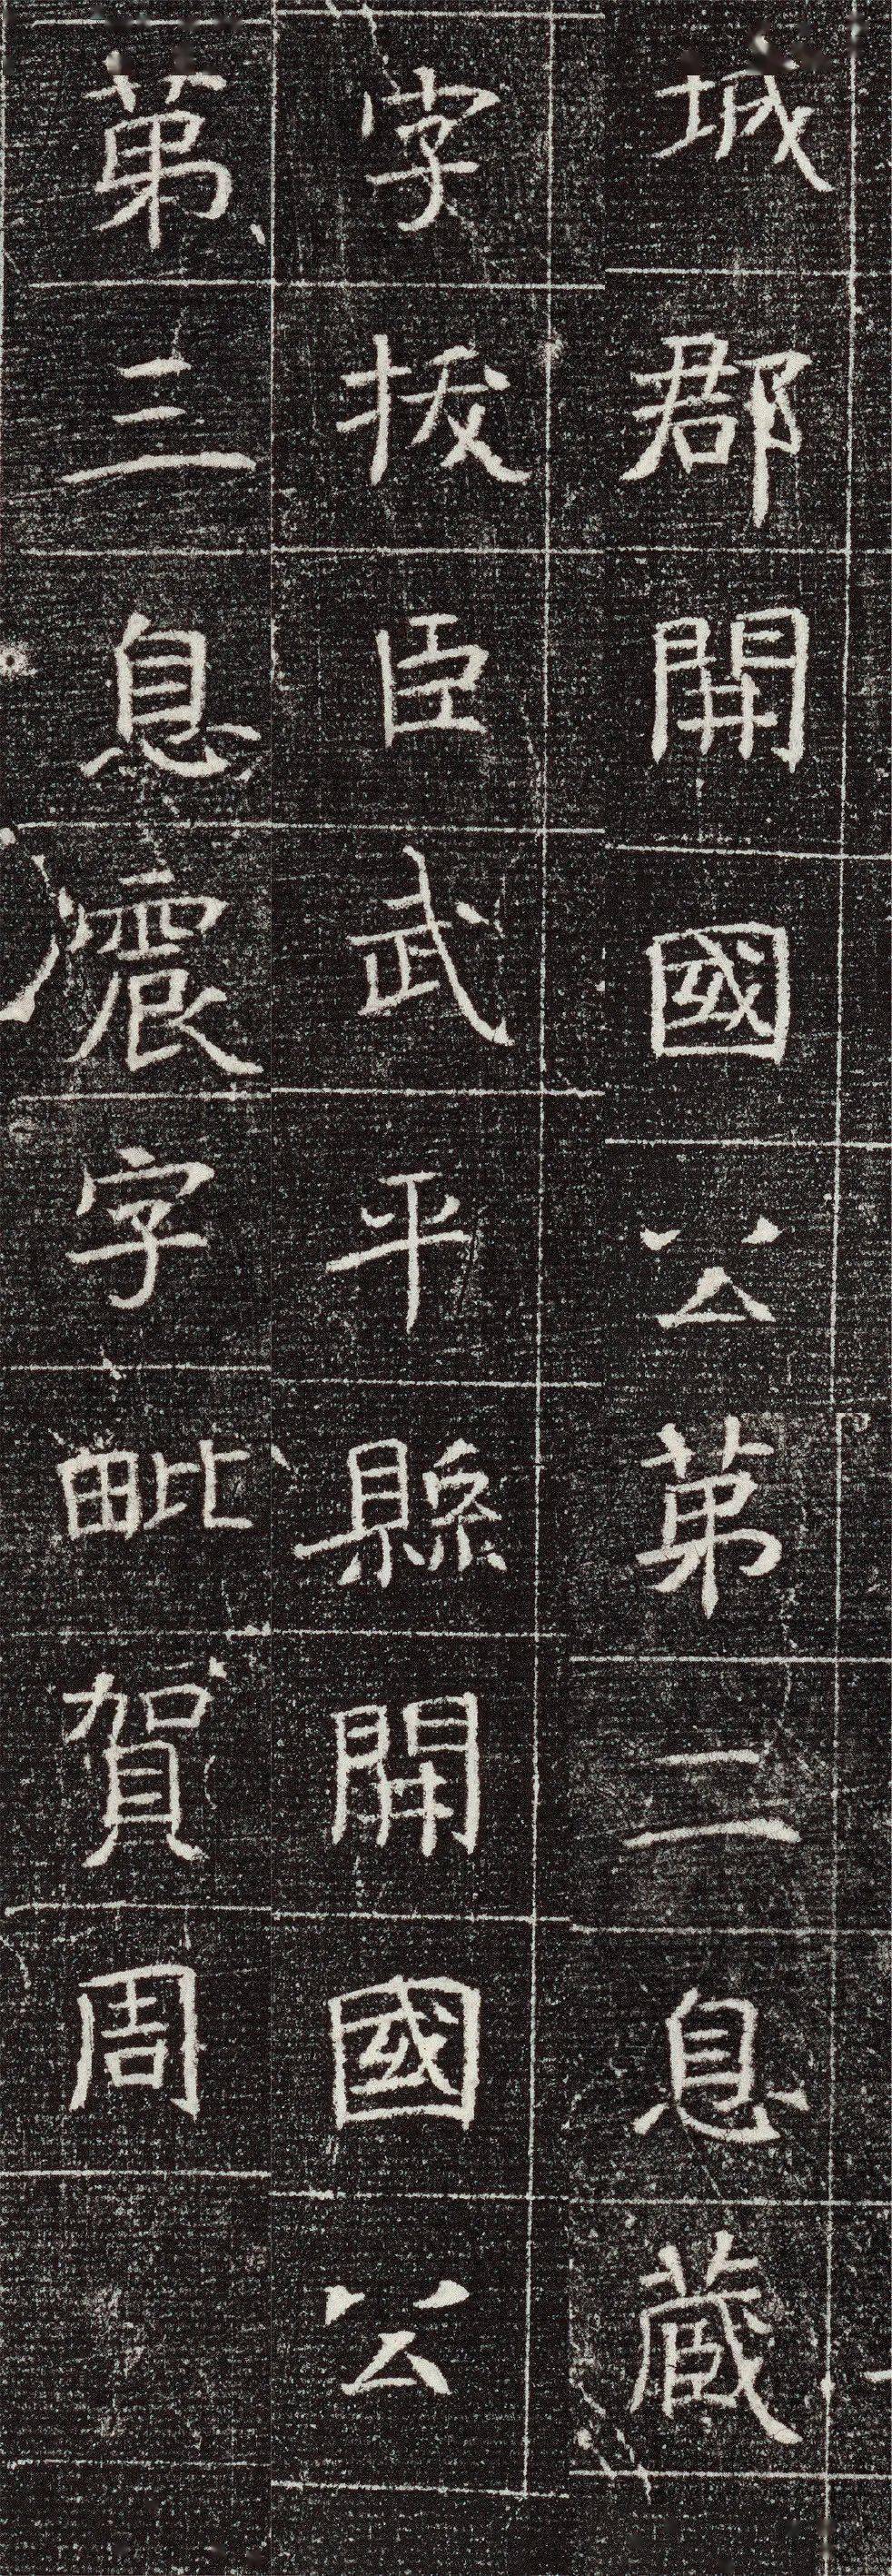 城郡開國公苐二息蔵
字拔臣武平縣開國公
苐三息震字毗賀周